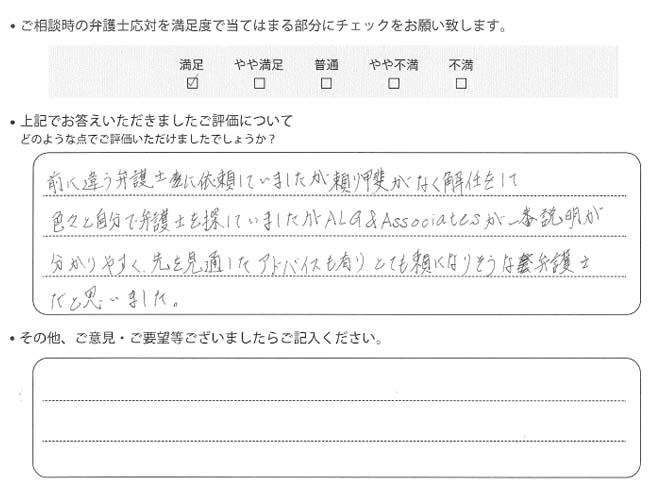 • ご相談時の弁護士応対を満足度で当てはまる部分にチェックをお願い致します。
満足 やや満足 普通 やや不満 不満
☑ □ □ □ □
• 上記でお答えいただきましたご評価について
どのような点でご評価いただけましたでしょうか?
前に違う弁護士に依頼していましたが頼り甲斐がなく解任をして
色々と自分で弁護士を探していましたがALG&Associatesが一番説明が
分かりやすく、先を見通したアドバイスも有り、とても頼になりそうな弁護士
だと思いました。
• その他、ご意見・ご要望等ございましたらご記入ください。